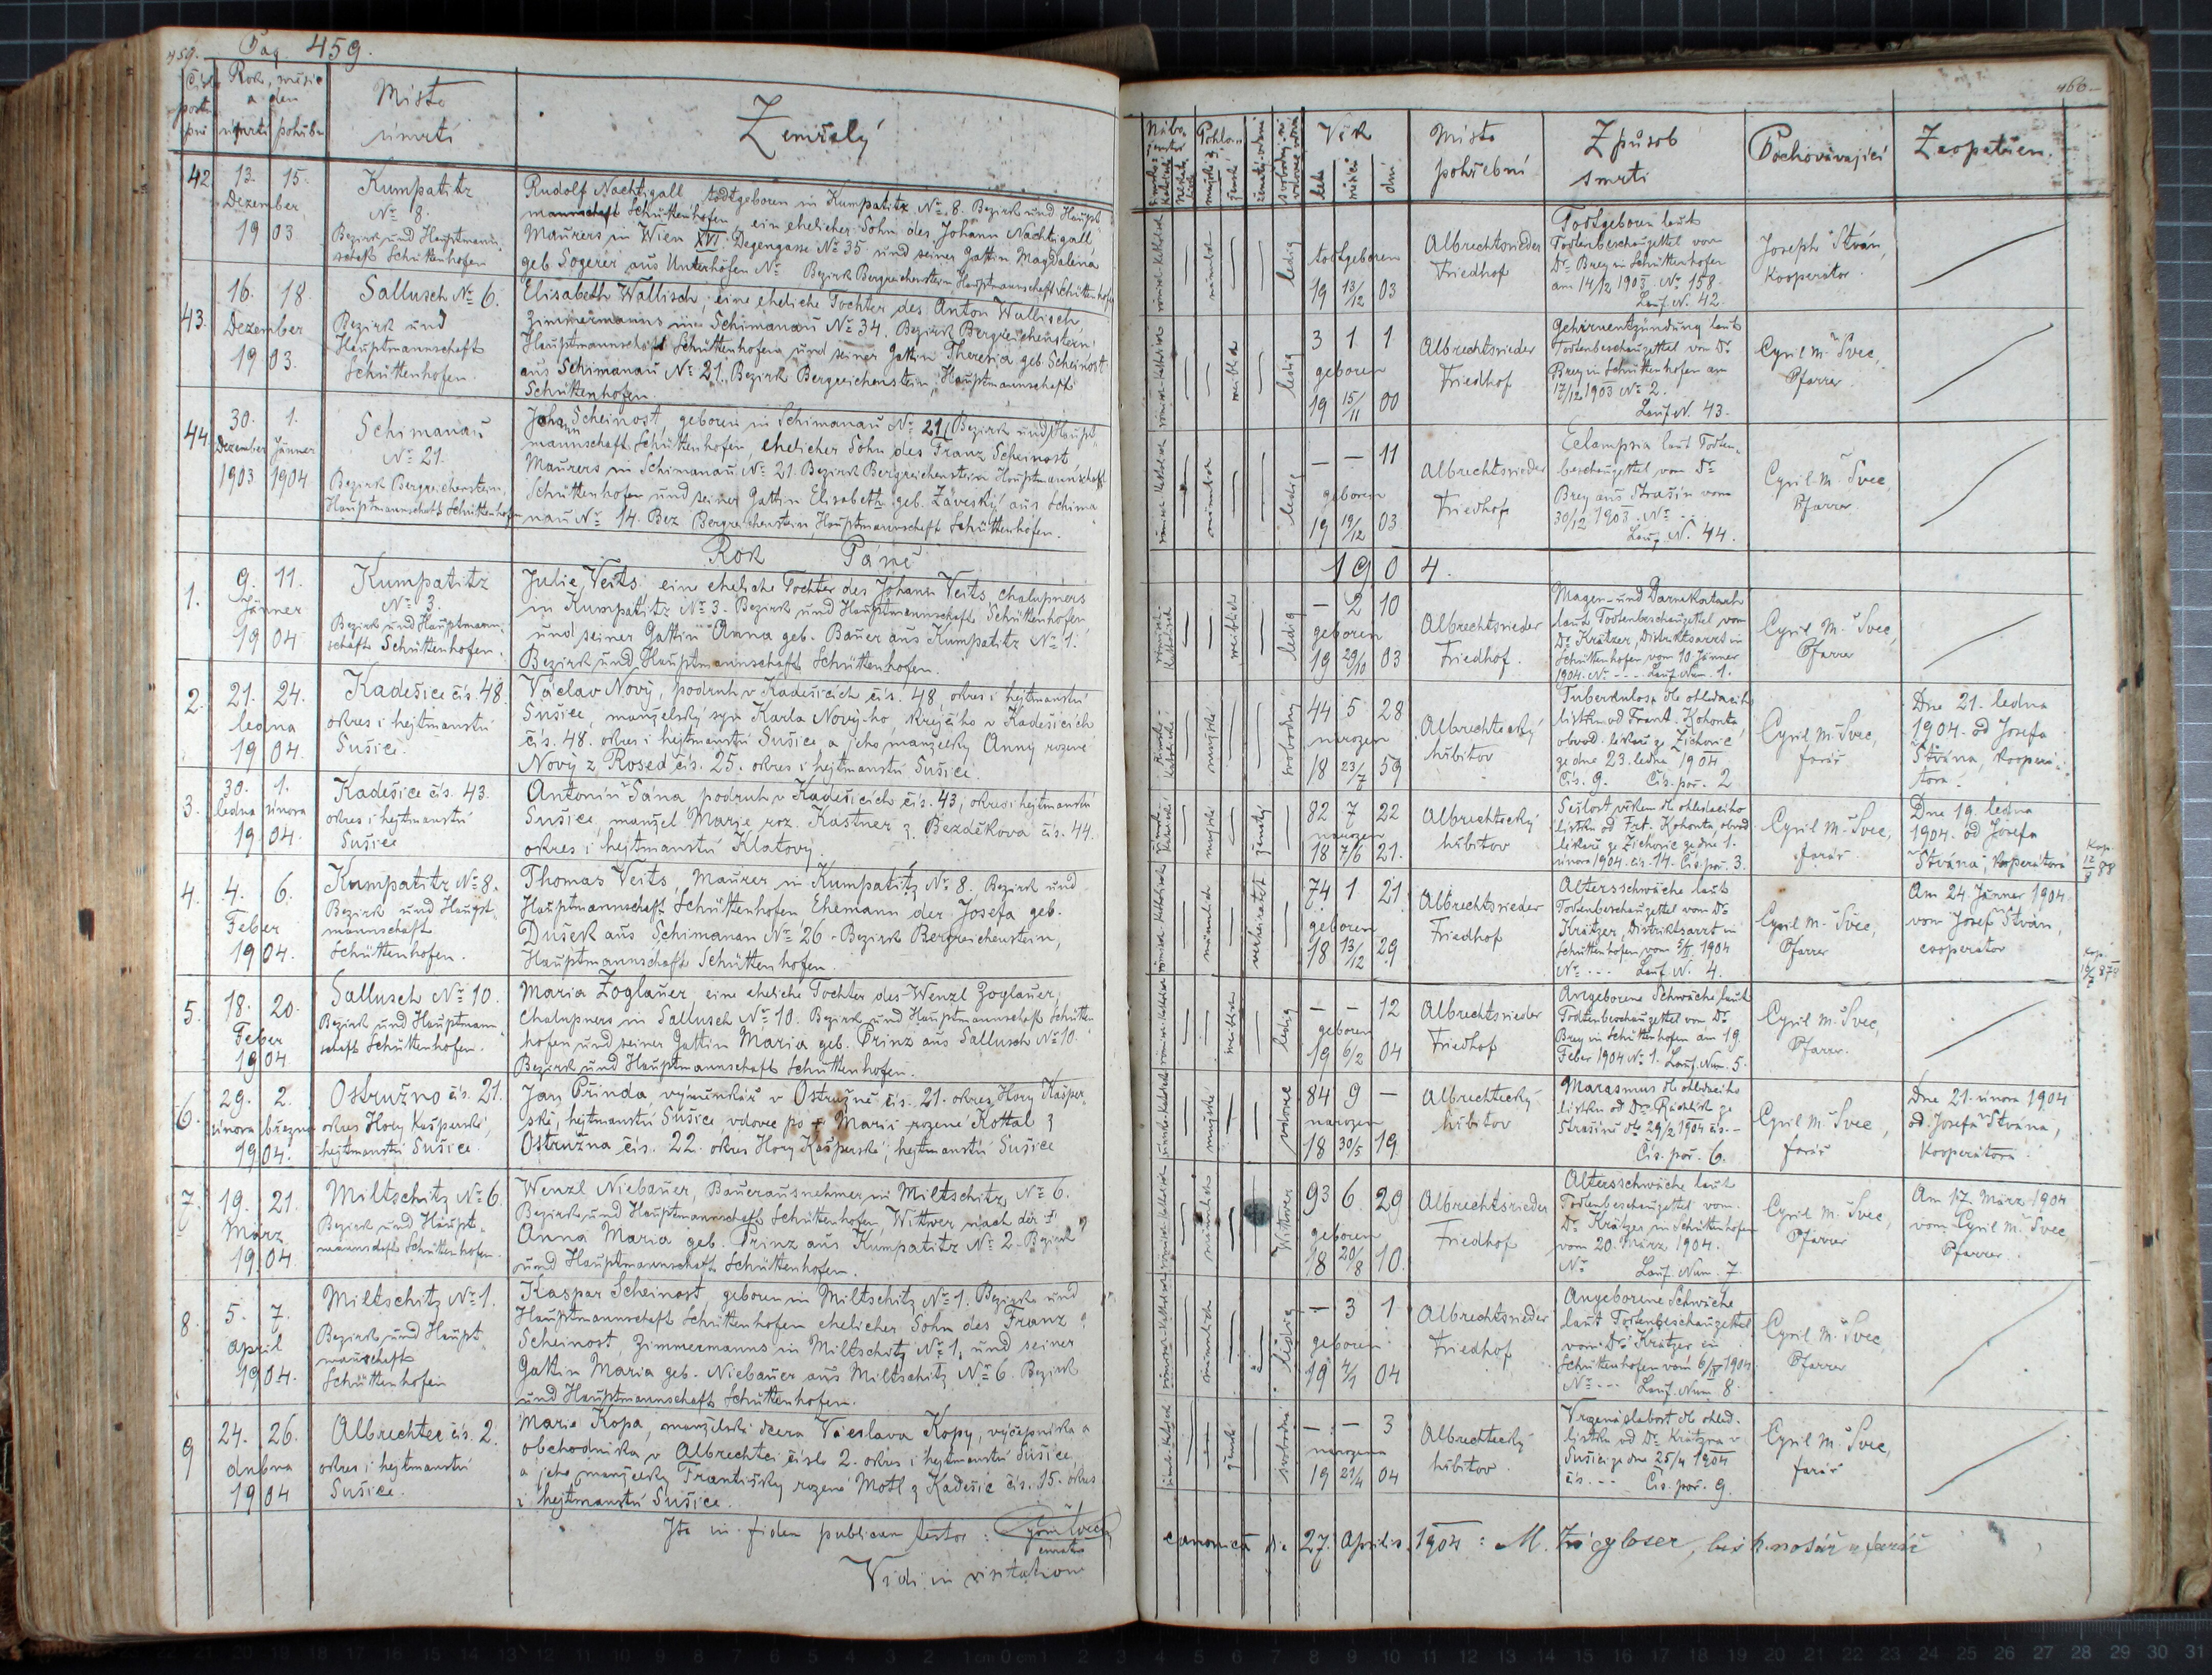 459. Pag. 459.
Rok, měsíc
a den
úmrtí pohřbu
Místo
úmrtí
Zemřelý
42. 13. 15.
Dezember
19 03
Kumpatitz
No 8.
Bezirk und Hauptmann-
schaft Schüttenhofen
Rudolf Nachtigall todtgeboren in Kumpatitz No 8. Bezirk und Haupt-
mannschaft Schüttenhofen, ein ehelicher Sohn des Johann Nachtigall
Maurers in Wien XVI. Degengasse No 35 und seiner Gattin Magdalena
geb. Sogerer aus Unterhöfen No Bezirk Bergreichenstein Hauptmannschaft Schüttenhofen
43. 16. 18
Dezember
19 03.
Sallusch No 6.
Bezirk und
Hauptmannschaft
Schüttenhofen.
Elisabeth Wallisch, eine eheliche Tochter des Anton Wallisch
Zimmermanns in Schimanau No 34. Bezirk Bergreichenstein
Hauptmannschaft Schüttenhofen und seiner Gattin Theresia geb. Scheinost
aus Schimanau No 21. Bezirk Bergreichenstein, Hauptmannschaft
Schüttenhofen
44. 30. 1.
Dezember Jänner
1903 1904
Schimanau
No 21.
Bezirk Bergreichenstein,
Hauptmannschaft Schüttenhofen
Johann Scheinost, geboren in Schimanau No 21, Bezirk und Haupt-
mannschaft Schüttenhofen, ehelicher Sohn des Franz Scheinost
Maurers in Schimanau No 21. Bezirk Bergreichenstein Hauptmannschaft
Schüttenhofen und seiner Gattin Elisabeth geb. Závrský aus Schima-
nau No 14. Bez Bergreichenstein, Hauptmannschaft Schüttenhofen.
Rok Páně
1. 9. 11.
Jänner
19 04
Kumpatitz
No 3.
Bezirk und Hauptmann-
schaft Schüttenhofen.
Julie Veits, eine eheliche Tochter des Johann Veits, chalupners
in Kumpatitz No 3. Bezirk und Hauptmannschaft Schüttenhofen
und seiner Gattin Anna geb. Bauer aus Kumpatitz No 1.
Bezirk und Hauptmannschaft Schüttenhofen.
2. 21. 24.
ledna
19 04.
Kadešice čís. 48.
okres i hejtmanství
Sušice.
Václav Nový, podruh v Kadešicích čís. 48, okres i hejtmanství
Sušice, manželský syn Karla Nový-ho, krejčího v Kadešicích
čís. 48. okres i hejtmanství Sušice, a jeho manželky Anny rozené
Nový z Rosed čís. 25. okres i hejtmanství Sušice.
3. 30. 1.
ledna února
19 04.
Kadešice čís. 43.
okres i hejtmanství
Sušice
Antonín Šána, podruh v Kadešicích čís. 43, okres i hejtmanství
Sušice, manžel Marie roz. Kastner z Bezděkova čís. 44.
okres i hejtmanství Klatovy.
4. 4. 6.
Feber
19 04.
Kumpatitz No 8.
Bezirk und Haupt-
mannschaft
Schüttenhofen.
Thomas Veits, Maurer in Kumpatitz No 8. Bezirk und
Hauptmannschaft Schüttenhofen, Ehemann der Josefa geb.
Dušek aus Schimanau No 26 - Bezirk Bergreichenstein,
Hauptmannschaft Schüttenhofen
5. 18. 20.
Feber
19 04
Sallusch No 10.
Bezirk und Hauptmann-
schaft Schüttenhofen.
Maria Zoglauer, eine eheliche Tochter des Wenzl Zoglauer,
Chalupners in Sallusch No 10. Bezirk und Hauptmannschaft Schütten-
hofen, und seiner Gattin Maria geb. Prinz aus Sallusch No 10.
Bezirk und Hauptmannschaft Schüttenhofen.
6. 29. 2.
února března
19 04.
Ostružno čís. 21.
okres Hory Kašperské,
hejtmanství Sušice.
Jan Přinda, výměnkář v Ostružně čís. 21. okres Hory Kašper-
ské, hejtmanství Sušice, vdovec po † Marii rozené Kottal z
Ostružna čís. 22. okres Hory Kašperské, hejtmanství Sušice
7. 19. 21.
März
19 04.
Miltschitz No 6.
Bezirk und Haupt-
mannschaft Schüttenhofen.
Wenzl Niebauer, Bauerausnehmer in Miltschitz No 6.
Bezirk und Hauptmannschaft Schüttenhofen, Wittwer nach der †
Anna Maria geb. Prinz aus Kumpatitz No 2 - Bezirk
und Hauptmannschaft Schüttenhofen.
8. 5. 7.
April
19 04.
Miltschitz No 1.
Bezirk und Haupt-
mannschaft
Schüttenhofen
Kaspar Scheinost, geboren in Miltschitz No 1. Bezirk und
Hauptmannschaft Schüttenhofen ehelicher Sohn des Franz
Scheinost, Zimmermanns in Miltschitz No 1, und seiner
Gattin Maria geb. Niebauer aus Miltschitz No 6. Bezirk
und Hauptmannschaft Schüttenhofen.
9 24. 26.
dubna
19 04
Albrechtec čís. 2.
okres i hejtmanství
Sušice.
Marie Kopa, manželská dcera Václava Kopy, výčepníka a
obchodníka v Albrechtci číslo 2. okres i hejtmanství Sušice,
a jeho manželky Františky rozené Motl z Kadešic čís. 15. okres
i hejtmanství Sušice.
Ita in fidem publicam testor:
Vidi in visitatione
460
Věk
leta měsíce dní
Místo
pohřební
Způsob
smrti
Pochovávající
Zaopatřen.
ledig
todtgeboren
19 13/12 03
Albrechtsrieder
Friedhof
Todtgeboren laut
Todtenbeschauzettel von
Dr. Brey in Schüttenhofen
am 14/12 1903. No 158.
Lauf. N. 42.
Joseph Štván,
Kooperator.
weiblich
ledig
3 1 1
geboren
19 15/11 00
Albrechtsrieder
Friedhof
Gehirnentzündung laut
Todtenbeschauzettel von Dr.
Brey in Schüttenhofen am
17/12 1903 No 2.
Lauf. N. 43.
Cyril M. Švec,
Pfarrer
ledig
— — 11
geboren
19 19/12 03
Albrechtsrieder
Friedhof
Eclampsia laut Todten-
beschauzettel vom Dr.
Brey aus Strašín vom
30/12 1903. No ...
Lauf. N. 44.
Cyril M. Švec,
Pfarrer
190 4.
weiblich
ledig
— 2 10
geboren
19 29/10 03
Albrechtsrieder
Friedhof.
Magen- und Darmkatarrh
laut Todtenbeschauzettel vom
Dr. Krátzer, Distriktsarzt in
Schüttenhofen vom 10 Jänner
1904. No - - - Lauf. Num. 1.
Cyril M. Švec,
Pfarrer
mužské
svobodný
44 5 28
narozen
18 23/7 59
Albrechtecký
hřbitov
Tuberkulosa dle ohledacího
lístku od Frant. Kohouta
obvod. lékaře ze Žichovic
ze dne 23. ledna 1904
čís. 9. Čís. poř. 2
Cyril M. Švec,
farář
Dne 21. ledna
1904. od Josefa
Štvána, kooperá-
tora.
mužské
ženatý
82 7 22
narozen
18 7/6 21.
Albrechtecký
hřbitov
Sešlost věkem dle ohledacího
lístku od Frt. Kohouta, obvod.
lékaře ze Žichovic ze dne 1.
února 1904. čís. 14. Čís. poř. 3.
Cyril M. Švec,
farář
Dne 19. ledna
1904. od Josefa
Štvána, kooperátora
männlich
verheiratet
74 1 21
geboren
18 13/12 29
Albrechtsrieder
Friedhof
Altersschwäche laut
Todtenbeschauzettel vom Dr.
Krátzer, Distriktsarzt in
Schüttenhofen, vom 5/II 1904
No ... Lauf. N. 4.
Cyril M. Švec,
Pfarrer
Am 24 Jänner 1904
vom Josef Štván,
cooperator
weiblich
ledig
— — 12
geboren
19 6/2 04
Albrechtsrieder
Friedhof
Angeborene Schwäche laut
Todtenbeschauzettel von Dr.
Brey in Schüttenhofen am 19.
Feber 1904 No 1. Lauf. Num. 5.
Cyril M. Švec,
Pfarrer.
mužské
vdovec
84 9 —
narozen
18 30/5 19
Albrechtecký
hřbitov
Marasmus dle ohledacího
Strašína dle 29/2 1904 čís. -
Čís. poř. 6.
Cyril M. Švec,
farář
Dne 21. února 1904
od Josefa Štvána,
kooperátora.
männlich
Wittwer
93 6 29
geboren
18 20/8 10.
Albrechtsrieder
Friedhof
Altersschwäche laut
Todtenbeschauzettel vom
Dr. Krátzer in Schüttenhofen
vom 20. März 1904.
No Lauf. Num. 7
Cyril M. Švec,
Pfarrer
Am 17. März 1904
vom Cyril M. Švec
Pfarrer.
männlich
ledig
— 3 1
geboren
19 4/1 04
Albrechtsrieder
Friedhof
Angeborene Schwäche
laut Todtenbeschauzettel
vom Dr. Krátzer in
Schüttenhofen vom 6/IV 1904
No - - - Lauf. Num 8.
Cyril M. Švec,
Pfarrer
ženské
svobodná
— — 3
narozena
19 21/4 04
Albrechtecký
hřbitov.
Vrozená slabost dle ohled.
lístku od Dr. Krátzra v
Sušici ze dne 25/4 1904
čís. - - - Čís. poř. 9.
Cyril M. Švec,
farář
canonica die 27. Aprilis. 1904: